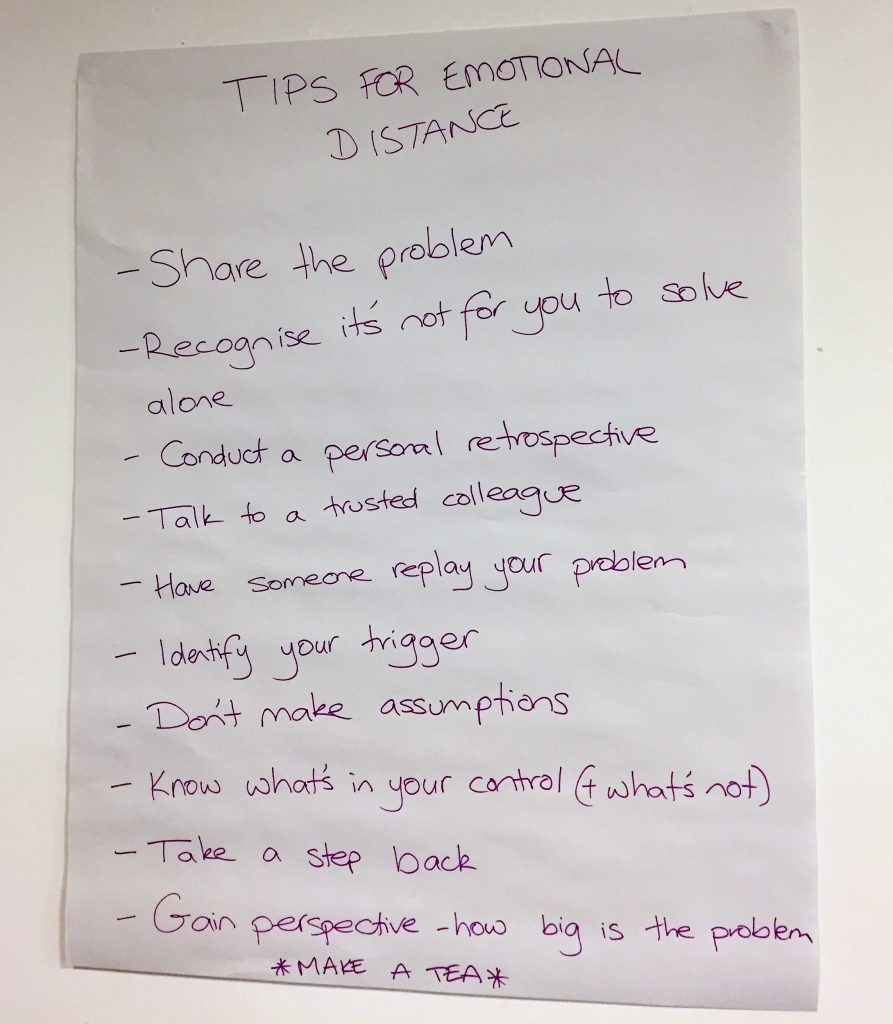 TIPS FOR EMOTIONAL
DISTANCE
- Share the problem
- Recognise it's not for you to solve
alone
- Conduct a personal retrospective
- Talk to a trusted colleague
- Have someone replay your problem
- Identify your trigger
- Don't make assumptions
- Know what's in your control (+ what's not)
- Take a step back
- Gain perspective - how big is the problem
*MAKE A TEA*